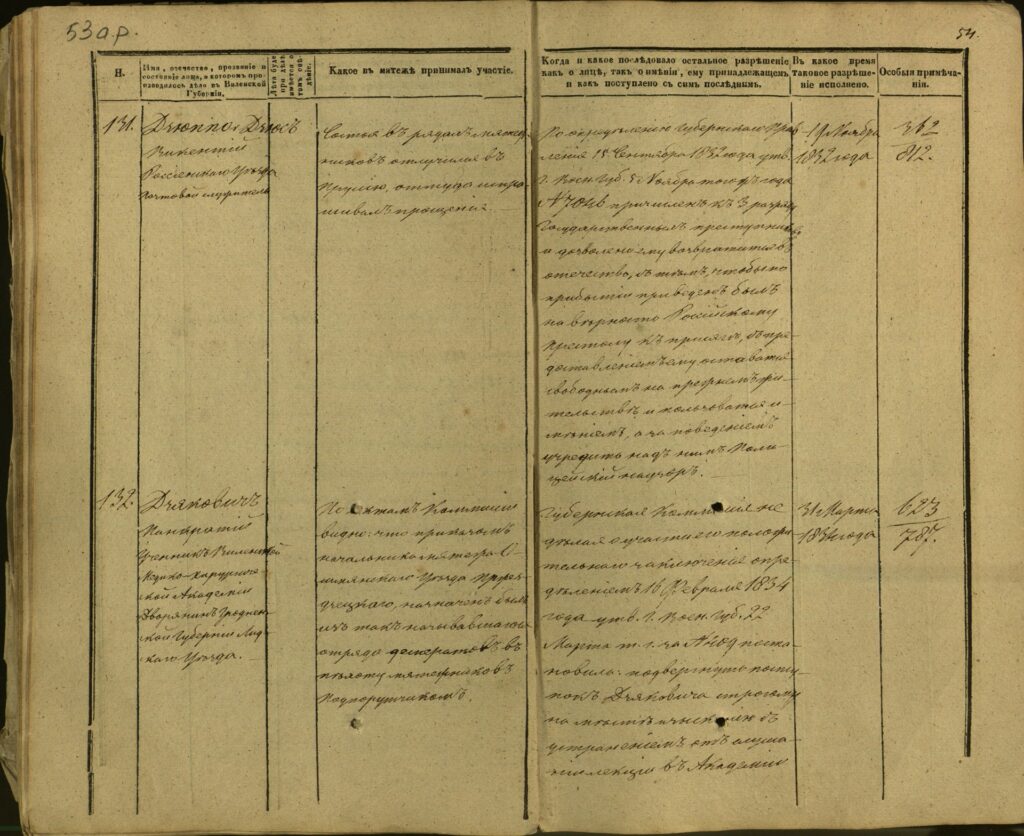 53 а.р.
54.
Н.
Имя, отечество, прозвание и
состояние лица, о котором про-
изводилось дѣло в Виленской
Губерніи.
Лѣта буде
при дѣлѣ
имѣется о
том свѣ-
дѣніе.
Какое въ мятежѣ принималъ участіе.
Когда и какое послѣдовало остальное разрѣшеніе
какъ о лицѣ, такъ о имѣніи, ему принадлежащемъ
и какъ поступлено съ симъ послѣднимъ.
Въ какое время
таковое разрѣше-
ніе исполнено.
Особыя примѣча-
нія.
131.
Викентій
Россіенскаго Уѣзда
Почтовой служитель
Состоя въ рядахъ мятеж-
никовъ отлучился въ
Прусію, откуда испра-
шивалъ прощенія.
По опредѣленію Губернскаго Прав
ленія 15 Сентября 1832 года утв.
Г. Воен. Губ. 5 Ноября того года
N 7046 причисленъ къ 3 разряду
Государственныхъ преступниковъ
и дозволено ему возвратится въ
отечество, съ тѣмъ, чтобы по
прибытіи приведенъ былъ
на вѣрность Россійскому
Престолу къ присягѣ, съ пре-
доставленіемъ ему оставатся
свободнымъ на прежнемъ жи-
тельствѣ и пользоватся и-
мѣніемъ, а за поведеніемъ
учредить надъ нимъ Поли-
цейскій надзоръ.
19 Ноября
1832 года
362
812.
132.
Дзяковичъ
Панкратій
Ученикъ Виленской
Медико-Хирургиче-
ской Академіи
Дворянинъ Гроднен-
ской Губерніи Лид-
скаго Уѣзда.
По актамъ Коммисіи
видно: что приказомъ
начальника мятежа О-
шмянскаго Уѣзда Прже-
здзецкаго, назначенъ былъ
изъ такъ называвшагося
отряда въ
пѣхоту мятежниковъ
Подпоручикомъ.
Губернская Коммисія не
дѣлая о участіи его положи-
тельнаго заключенія опре-
дѣленіемъ 16 Февраля 1834
года утв. Г. Воен. Губ. 22
Марта т. г. за поста-
новила: подвергнуть посту-
покъ Дзяковича строгому
на мѣстѣ взысканію съ
устраненіемъ отъ слуша-
нія лекціи въ Академіи
31 Марта
1834 года
623
787.